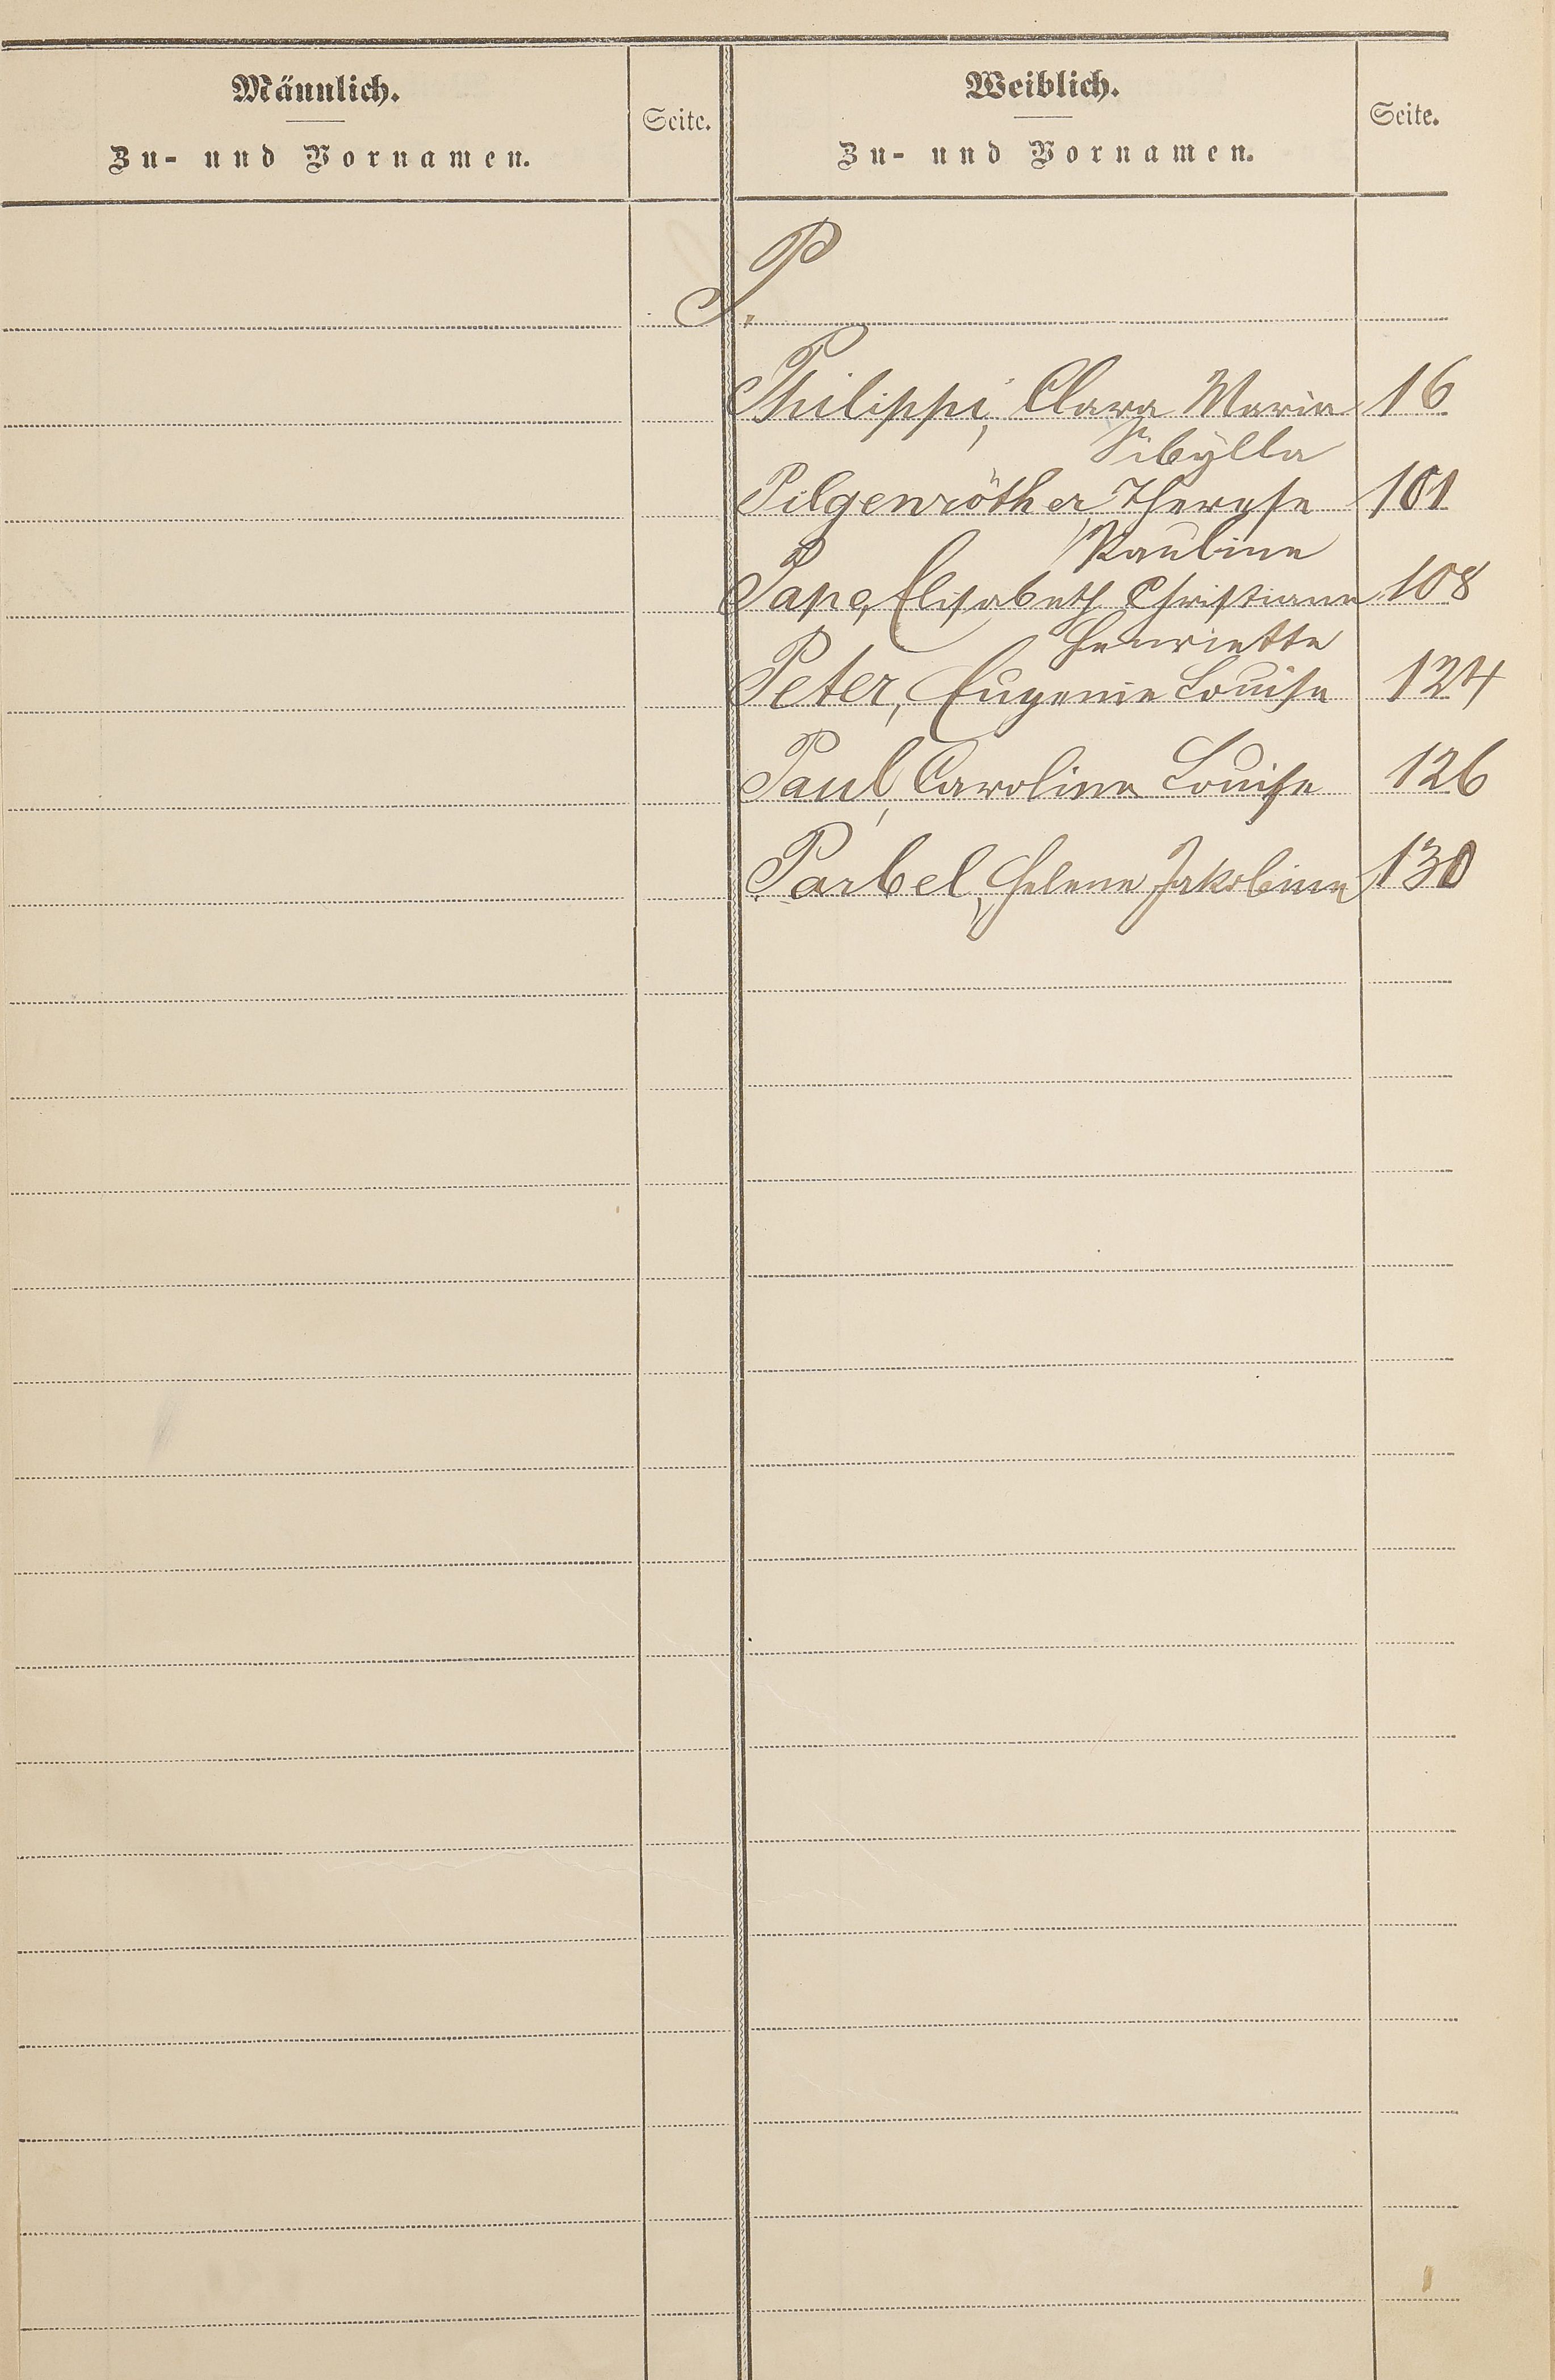 Männlich.
Zu- und Vornamen.
Seite.
Weiblich.
Zu- und Vornamen.
Seite.
P.
Philippi, Clara Maria 16
Sibÿlla
Pilgenröther, Therese 101
Pauline
Pape, Elisabeth Christiane 108
Henriette
Peter, Eugenie Louise 124
Paul, Caroline Louise 126
Parbel, Helene Jakobine 130